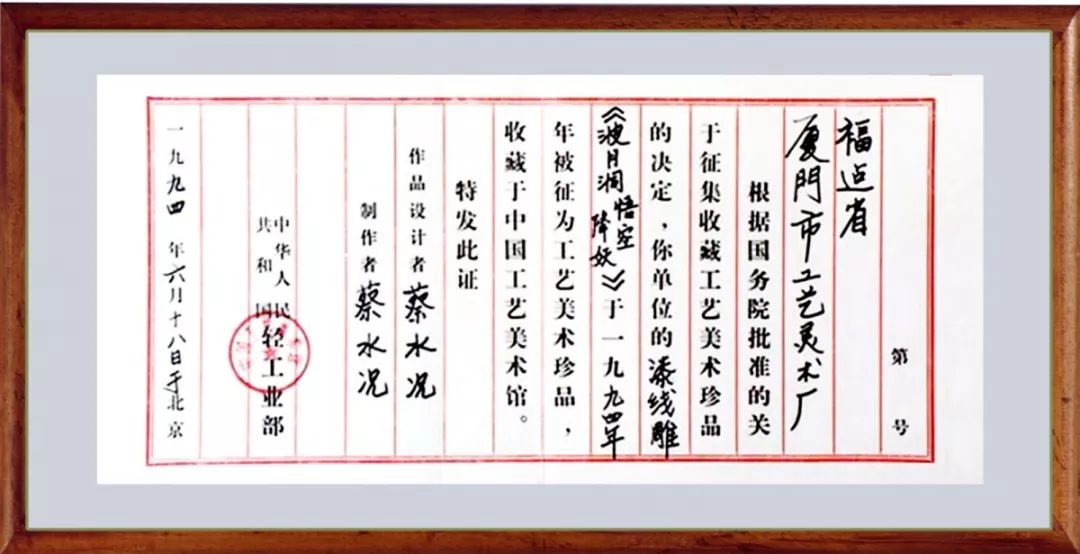 第 号
福迠省
厦門市工艺美术厂
根据国务院批准的关
于征集收藏工艺美术珍品
的决定，你单位的漆线雕
《波月洞悟空降妖》于一九九四年
年被征为工艺美术珍品，
收藏于中国工艺美术馆。
特发此证
作品设计者蔡水况
制作者蔡水况
中华人民共和国轻工业部
一九九四年六月十八日于北京